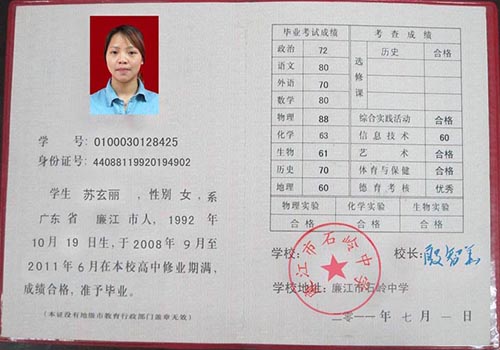 学 号: 0100030128425
身份证号: 44088119920194902
学生 苏玄丽 , 性别 女 , 系
广东 省 廉江 市人 , 1992 年
10 月 19 日生 , 于 2008 年 9 月至
2011 年 6 月在本校高中修业期满 ,
成绩合格 , 准予毕业 。
(本证没有地级市教育行政部门盖章无效)
毕业考试成绩 考 查 成 绩
政治 72 选修课 历史 合格
语文 80
外语 70
数学 80
物理 88 综合实践活动 合格
化学 63 信 息 技 术 60
生物 61 艺 术 合格
历史 70 体育与保健 合格
地理 60 德育考核 优秀
物理实验 化学实验 生物实验
合格 合格 合格
学校: 校长:
廉江市石岭中学
学校地址: 廉江市石岭中学
二〇一一年 七 月 一 日